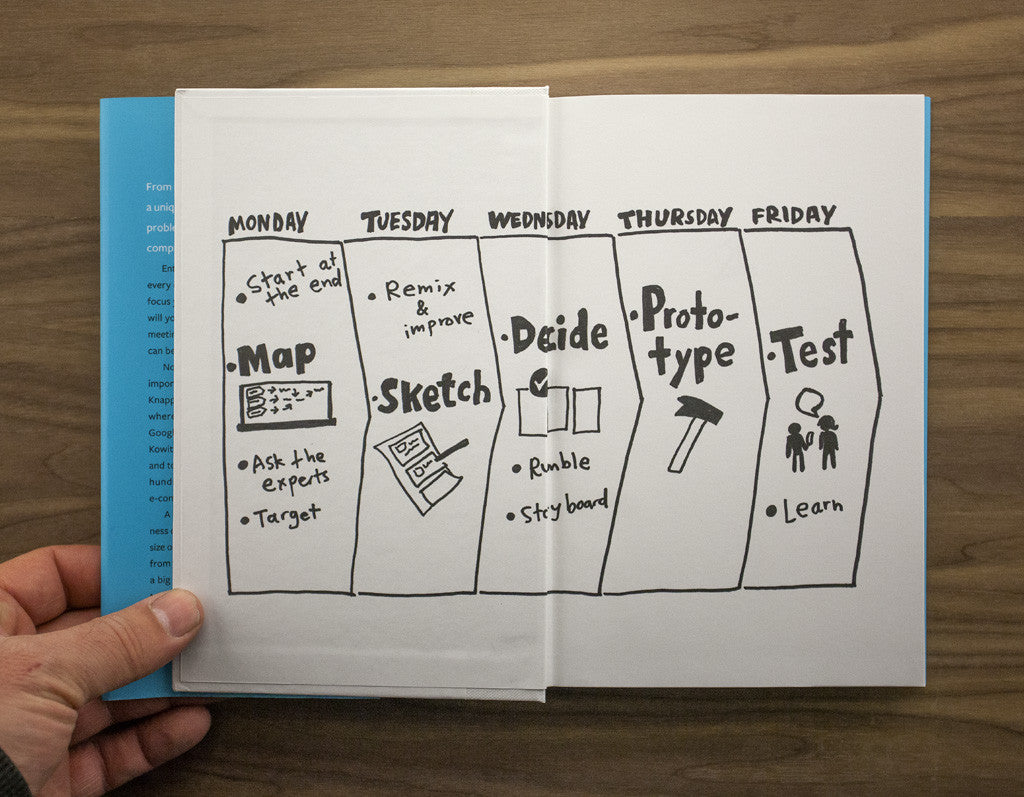 From
a uniq
proble
comp
Ent
every
focus
will yo
meetin
can be
No
impor
Knapp
where
Googl
Kowit
and to
hund
e-con
A
ness
size o
from
a big
MONDAY
• Start at
the end
• Map
• Ask the
experts
• Target
TUESDAY
• Remix
&
improve
• Sketch
WEDNSDAY
• Decide
• Rumble
• Storyboard
THURSDAY
• Proto-
type
FRIDAY
• Test
• Learn